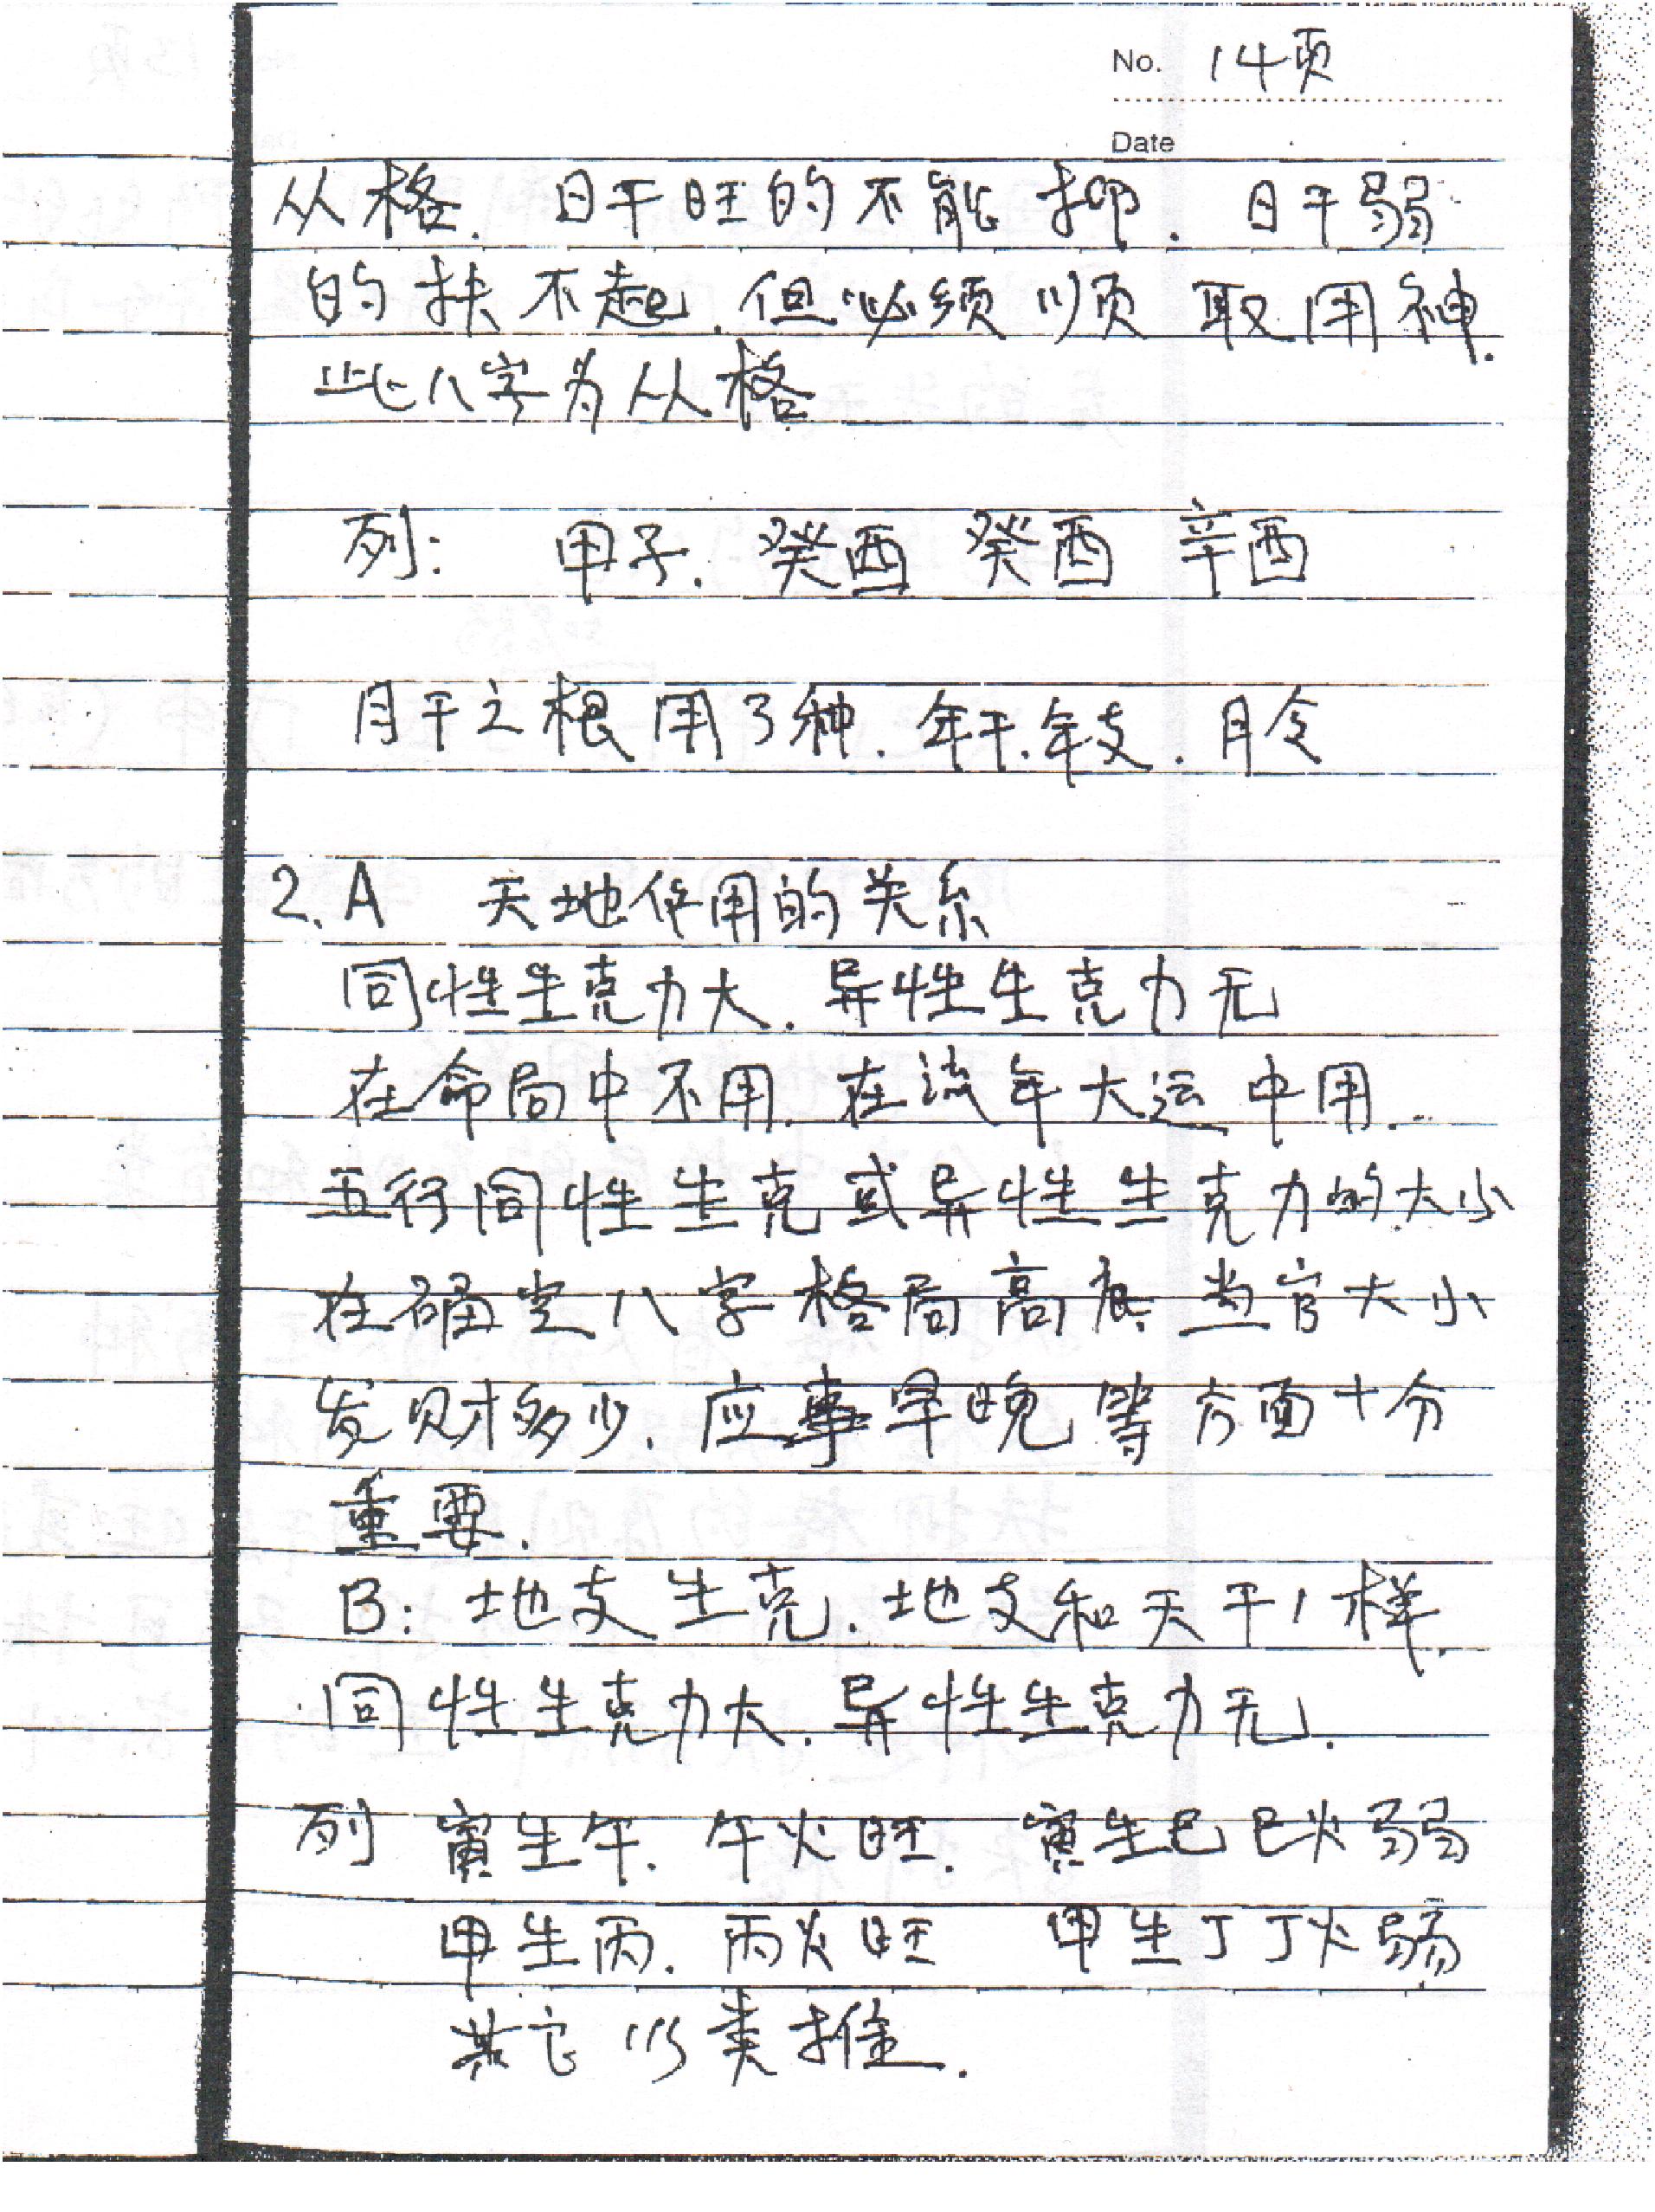 No. 14页
Date
从格. 日干旺的不能抑. 日干弱
的扶不起. 但必须顺取用神.
此八字为从格
列: 甲子. 癸酉 癸酉 辛酉
月干之根用了种. 年干. 年支. 月令
2. A 天地作用的关系
同性生克力大. 异性生克力无
在命局中不用. 在流年大运中用.
五行同性生克或异性生克力的大小
在确定八字格局高底 当官大小
发财多少. 应事早晚等方面十分
重要.
B: 地支生克. 地支和天干1样.
同性生克力大. 异性生克力无.
列 寅生午. 午火旺. 寅生巳巳火弱
甲生丙. 丙火旺 甲生丁丁火弱
其它以类推.